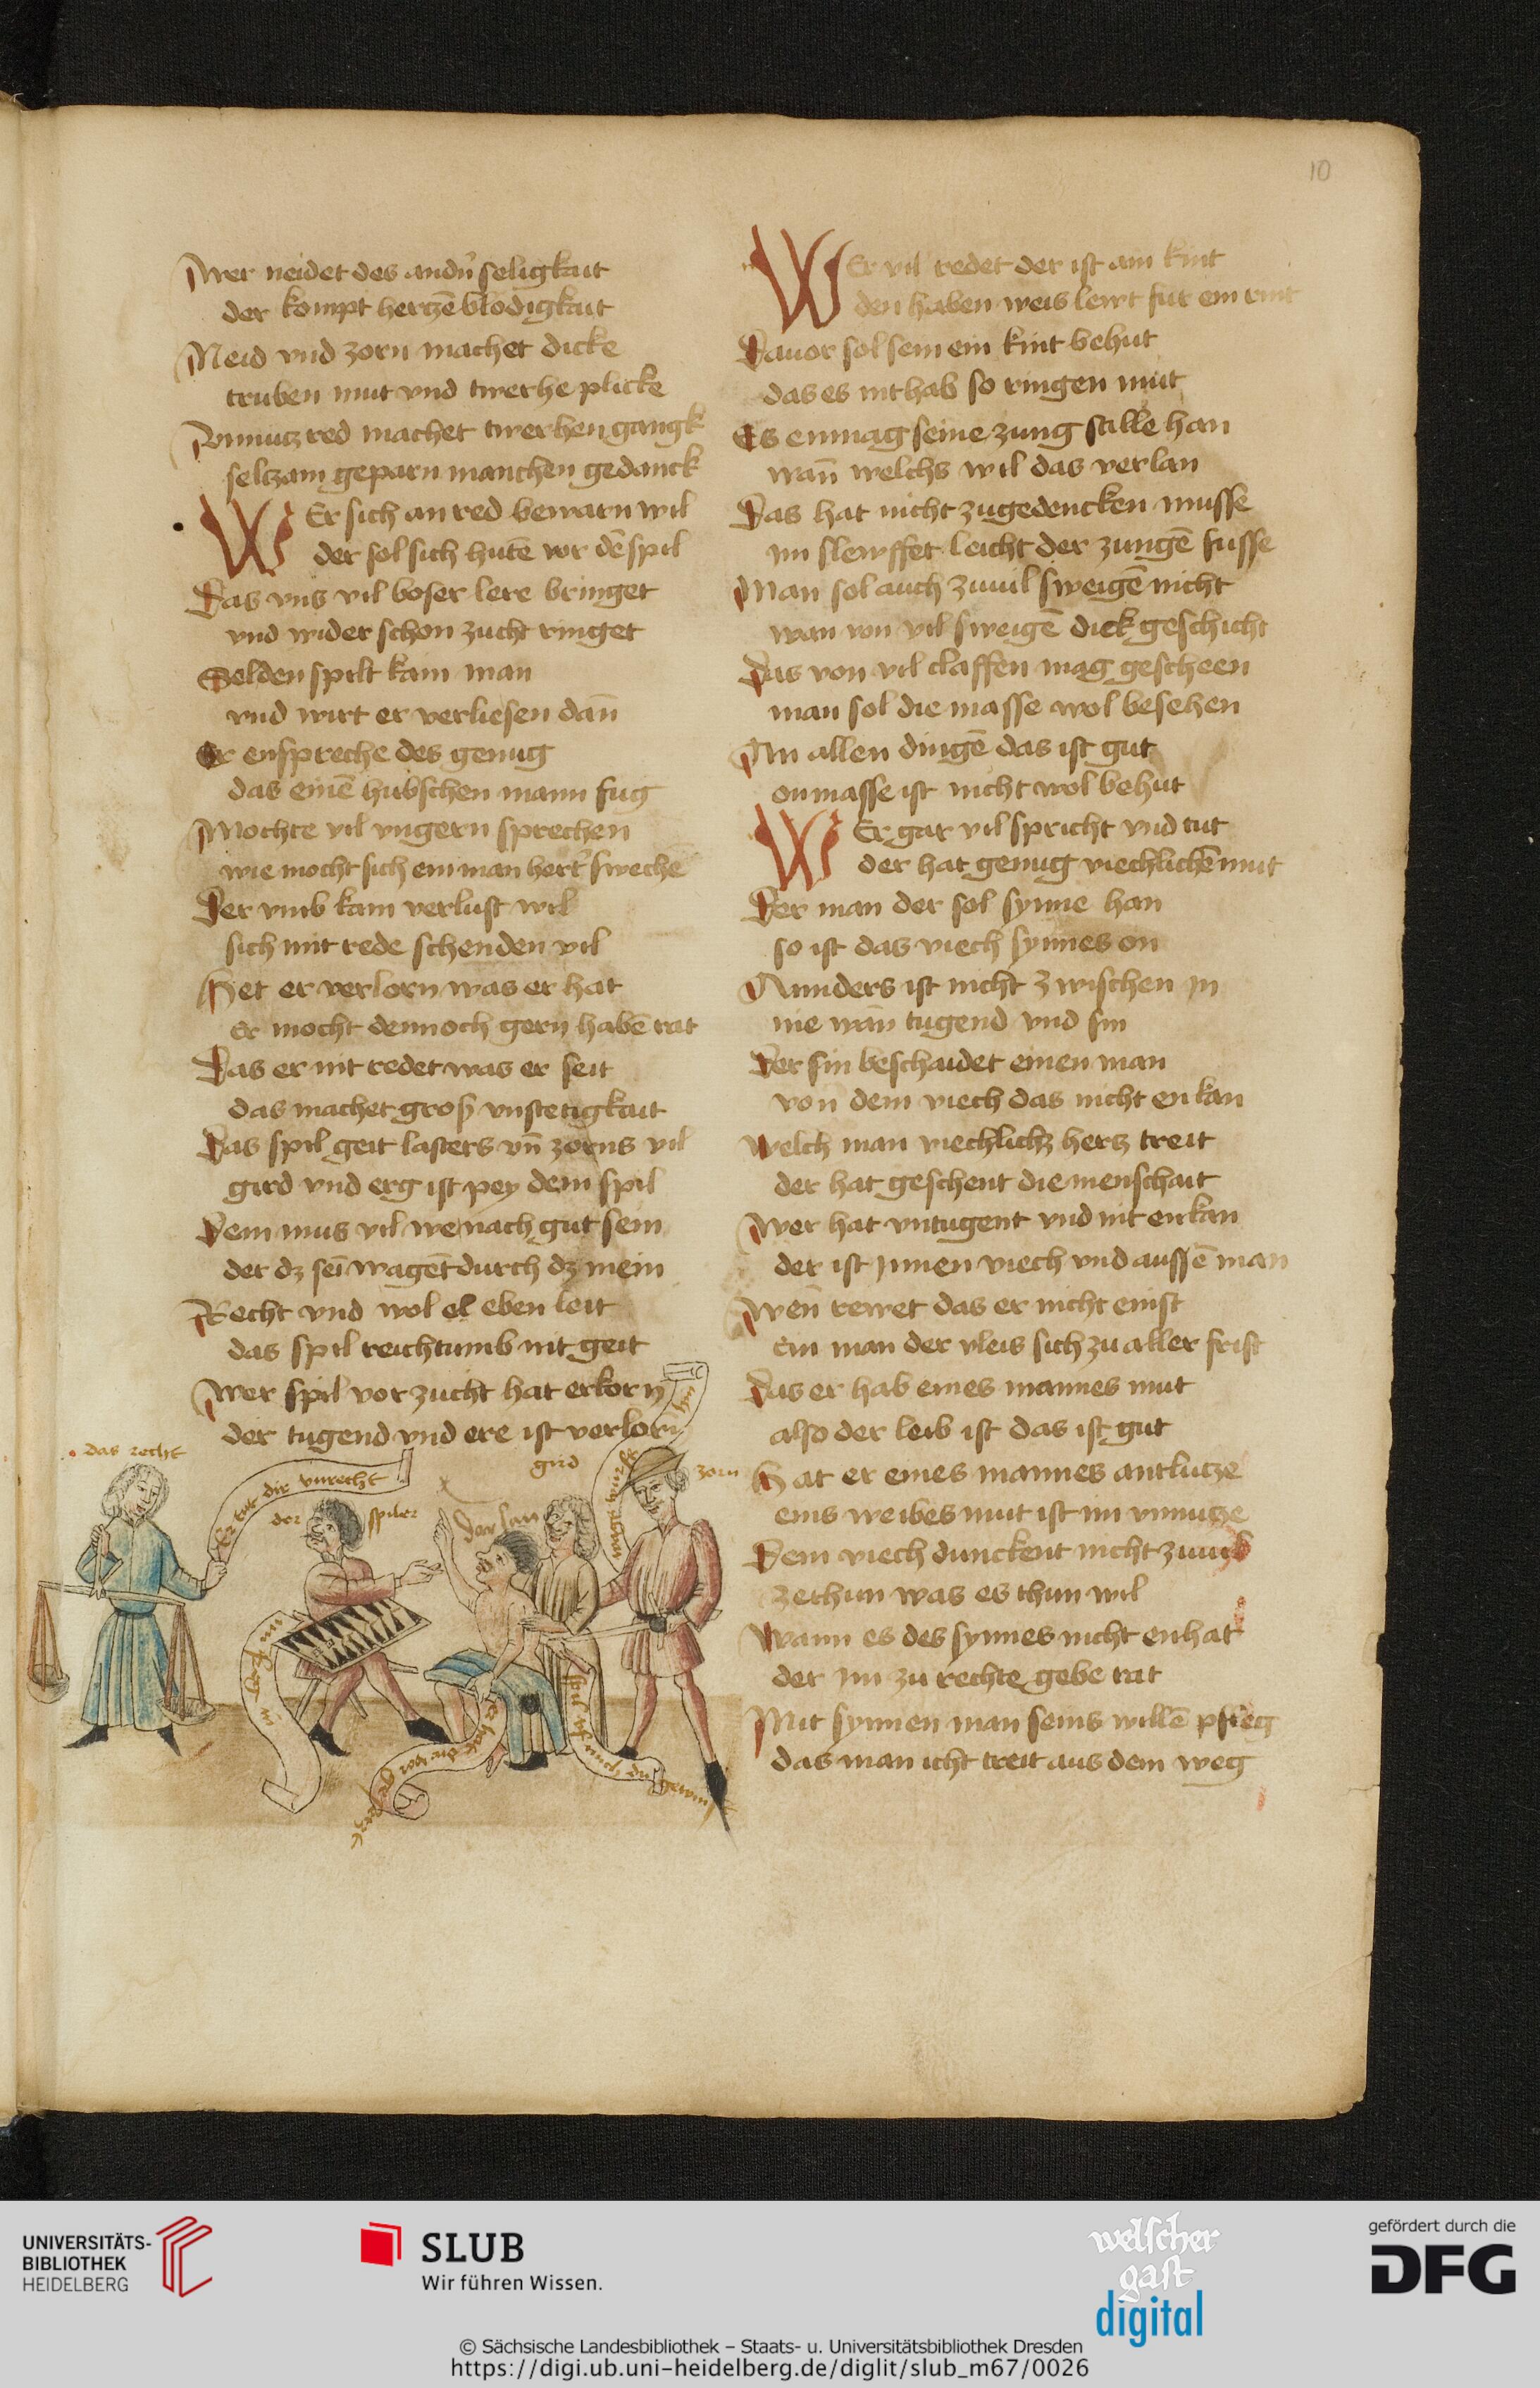 10
Wer neidet des andn̄ seligkait
der kompt hertzē blodigkait
Neid vnd zorn machet dicke
truben mut vnd twerhe plicke
Vnnutz red machet twerhen gangk
seltzam geparn manchen gedanck
WEr sich an red bewarn wil
der sol sich hutē vor dē spil
Das vns vil boser lere bringet
vnd wider schon zucht ringet
Selden spilt kain man
vnd wirt er verliesen dan̄
Er enspreche des genug
das einē hubschen mann fug
Mochte vil vngern sprechen
wie mocht sich ein man hert' swechē
Der vmb kain verlust wil
sich mit rede schenden vil
Het er verlorn was er hat
Er mocht dennoch gern habē rat
Das er nit redet was er seit
das machet gros vnstetigkait
Das spil geit lasters vn̄ zorns vil
gird vnd erg ist pey dem spil
Dem mus vil we nach gut sein
der dz sei wagēt durch dz mein
Recht vnd wol el eben leit
das spil reichtumb nit geit
Wer spil vor zucht hat erkorn
der tugend vnd ere ist verlorn
das recht
Er tut dir vnrecht
der spiler
gird
zorn
WEr vil redet der ist ain kint
den haben weis lewt fur ein rint
Dauor sol sein ein kint behut
das es nit hab so ringen mut
Es enmag seine zung stille han
wan̄ welchs wil das verlan
Das hat nicht zugedencken musse
im slewffet leicht der zungē fusse
Man sol auch zuuil sweigē nicht
wan von vil sweigē dick geschicht
Das von vil claffen mag gescheen
man sol die masse wol besehen
In allen dingē das ist gut
on masse ist nicht wol behut
WEr gar vil spricht vnd tut
der hat genug viechlichē mut
Der man der sol synne han
so ist das viech synnes on
Annders ist nicht zwischen in
nie wan̄ tugend vnd sin
Der sin beschaidet einen man
von dem viech das nicht enkan
Welch man viechlichz hertz treit
der hat geschent die menschait
Wer hat vntugent vnd nit enkan
der ist Innen viech vnd aussē man
Wen̄ rewet das er nicht enist
Ein man der vleis sich zu aller frist
Das er hab eines mannes mut
also der leib ist das ist gut
Hat er eines mannes antlutze
eins weibes mut ist im vnnutze
Dem viech dunckent nicht zuuil
zethun was es thun wil
Wann es des synnes nicht enhat
der Im zu rechte gebe rat
Mit synnen man seins willē pfleg
das man icht treit aus dem weg
UNIVERSITÄTS-
BIBLIOTHEK
HEIDELBERG
SLUB
Wir führen Wissen.
welscher
gast
digital
gefördert durch die
DFG
© Sächsische Landesbibliothek – Staats- u. Universitätsbibliothek Dresden
https://digi.ub.uni-heidelberg.de/diglit/slub_m67/0026